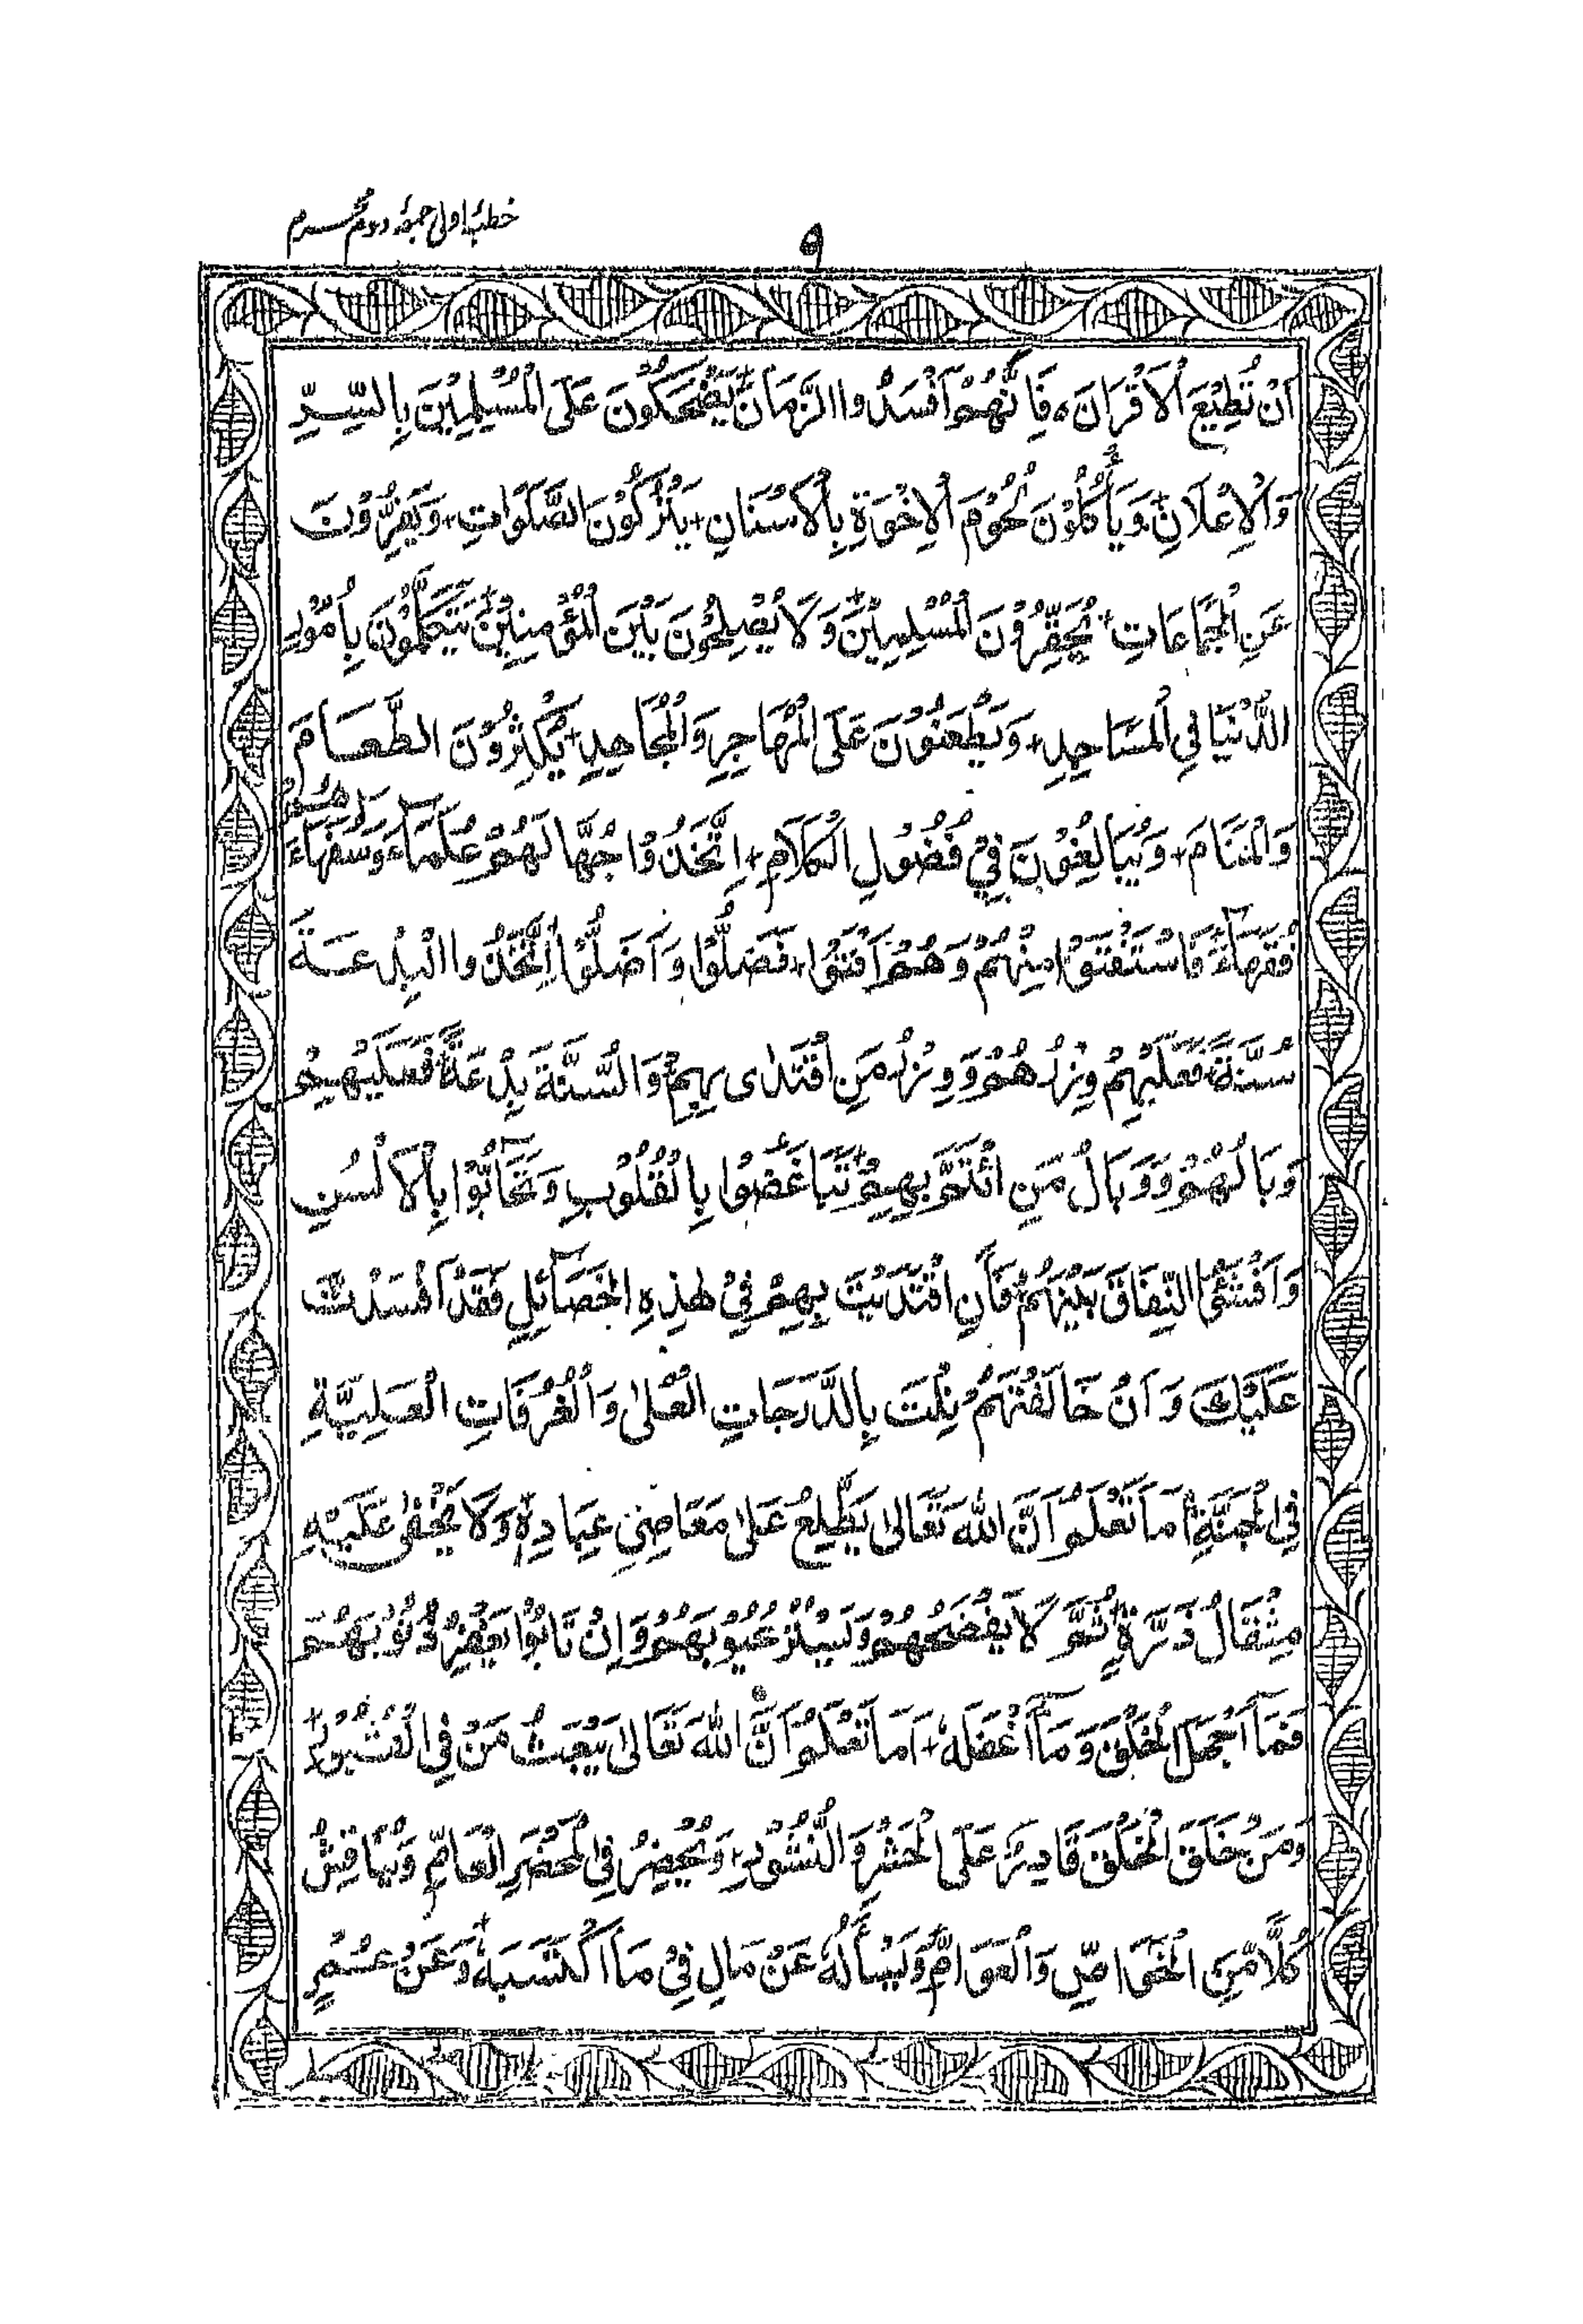 خطبۂ اولی جمعۂ دوم محرم
٩
اَنْ تُطِيْعَ الْاَقْرَانَ ۰ فَاِنَّهُمْ اَفْسَدُوا الزَّمَانَ + يَضْحَكُوْنَ عَلَى الْمُسْلِمِيْنَ بِالسِّرِّ
وَالْاِعْلَانِ + وَيَأْكُلُوْنَ لُحُوْمَ الْاِخْوَةِ بِالْاَسْنَانِ + يَتْرُكُوْنَ الصَّلَوَاتِ + وَيَفِرُّوْنَ
عَنِ الْجَمَاعَاتِ + يُحَقِّرُوْنَ الْمُسْلِمِيْنَ + وَلَا يُصْلِحُوْنَ بَيْنَ الْمُؤْمِنِيْنَ + يَتَكَلَّمُوْنَ بِاُمُوْرِ
الدُّنْيَا فِي الْمَسَاجِدِ + وَيَطْعَنُوْنَ عَلَى الْمُهَاجِرِ وَالْمُجَاهِدِ + يُكْثِرُوْنَ الطَّعَامَ
وَالْمَنَامَ + وَيُبَالِغُوْنَ فِيْ فُضُوْلِ الْكَلَامِ + اِتَّخَذُوْا جُهَّالَهُمْ عُلَمَآءَ وَسُفَهَآءَهُمْ
فُقَهَآءَ فَاسْتَفْتَوْا مِنْهُمْ وَهُمْ اَفْتَوْا + فَضَلُّوْا وَاَضَلُّوْا اِتَّخَذُوا الْبِدْعَةَ
سُنَّةً فَعَلَيْهِمْ وِزْرُهُمْ وَوِزْرُ مَنِ اقْتَدٰى بِهِمْ وَالسُّنَّةَ بِدْعَةً فَعَلَيْهِمْ
وَبَالُهُمْ وَوَبَالُ مَنِ ائْتَمَّ بِهِمْ + تَبَاغَضُوْا بِالْقُلُوْبِ وَتَحَآبُّوْا بِالْاَلْسُنِ
وَاَفْشَوُا النِّفَاقَ بَيْنَهُمْ فَاِنِ اقْتَدَيْتَ بِهِمْ فِيْ هٰذِهِ الْخَصَآئِلِ فَقَدْ اَفْسَدْتَّ
عَلَيْكَ وَاَنْ خَالَفْتَهُمْ نِلْتَ بِالدَّرَجَاتِ الْعُلٰى وَالْغُرُفَاتِ الْعَلِيَّةِ
فِي الْجَنَّةِ + اَمَا تَعْلَمُ اَنَّ اللهَ تَعَالٰى يَطَّلِعُ عَلٰى مَعَاصِيْ عِبَادِهٖ وَلَا يَخْفٰى عَلَيْهِ
مِثْقَالُ ذَرَّةٍ + ثُمَّ لَا يَفْضَحُهُمْ وَيَسْتُرُ عُيُوْبَهُمْ وَاِنْ تَابُوْا يَغْفِرُ ذُنُوْبَهُمْ
فَمَا اَجْهَلَ الْخَلْقَ وَمَآ اَغْفَلَهٗ + اَمَا تَعْلَمُ اَنَّ اللهَ تَعَالٰى يَبْعَثُ مَنْ فِي الْقُبُوْرِ +
وَمَنْ خَلَقَ الْخَلْقَ قَادِرٌ عَلَى الْحَشْرِ وَالنُّشُوْرِ + وَيُحْضِرُ فِي الْمَحْضَرِ الْعَامِّ وَيُنَاقِشُ
كُلًّا مِّنَ الْخَوَاصِّ وَالْعَوَامِّ وَيَسْأَلُهٗ عَنْ مَالٍ فِيْ مَا اكْتَسَبَهٗ + وَعَنْ عُمُرٍ